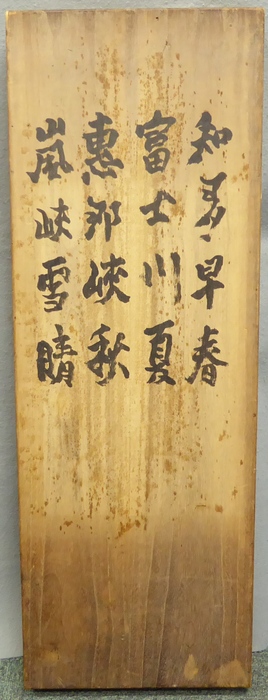 知多早春
富士川夏
惠那峡秋
嵐峡雪晴